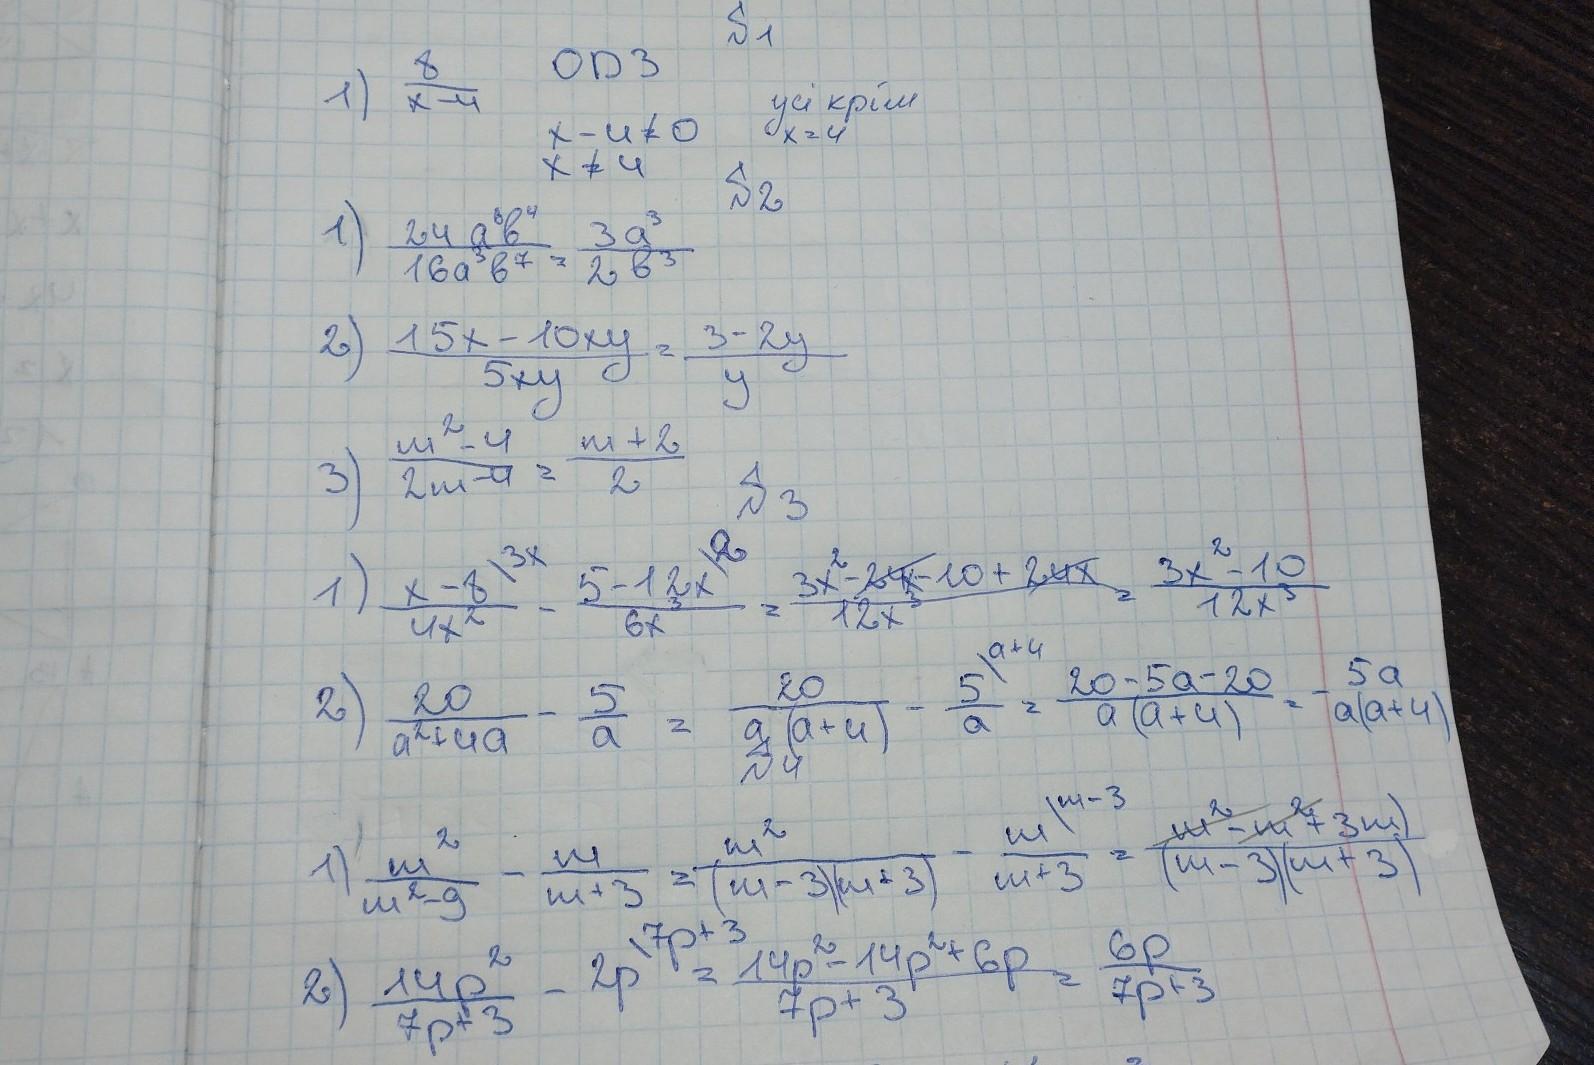 №1
1) 8/(x-4) ОДЗ
x-4≠0 усі крім
x≠4 x=4
№2
1) 24a⁶b⁴/16a³b⁷ = 3a³/2b³
2) (15x-10xy)/5xy = (3-2y)/y
3) (m²-4)/(2m-4) = (m+2)/2
№3
1) (x-8)/4x² \3x - (5-12x)/6x³ \2 = (3x²-24x-10+24x)/12x³ = (3x²-10)/12x³
2) 20/(a²+4a) - 5/a = 20/a(a+4) - 5/a \a+4 = (20-5a-20)/a(a+4) = -5a/a(a+4)
№4
1) m²/(m²-9) - m/(m+3) = m²/(m-3)(m+3) - m/(m+3) \m-3 = (m²-m²+3m)/(m-3)(m+3)
2) 14p²/(7p+3) - 2p \7p+3 = (14p²-14p²+6p)/(7p+3) = 6p/(7p+3)